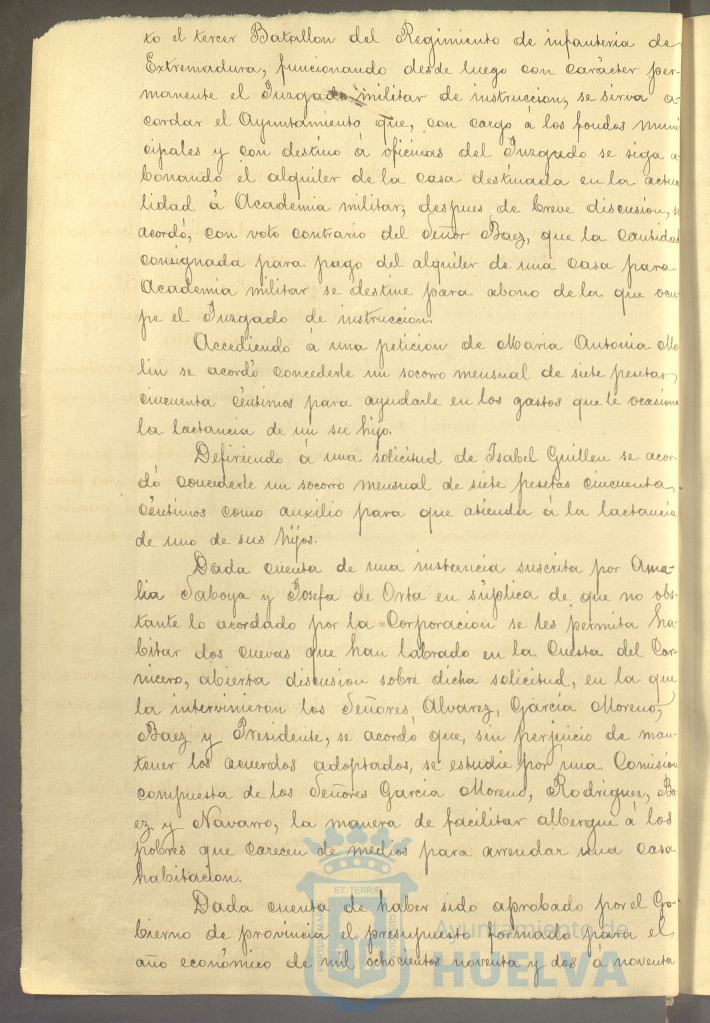 to el tercer Batallon del Regimiento de infanteria de
Extremadura, funcionando desde luego con carácter per-
manente el Juzgado militar de instruccion, se sirva a-
cordar el Ayuntamiento que, con cargo á los fondos muni
cipales y con destino á oficinas del Juzgado se siga a-
bonando el alquiler de la casa destinada en la actua
lidad á Academia militar; despues de breve discusion, se
acordó, con voto contrario del Señor Baez, que la cantidad
consignada para pago del alquiler de una casa para
Academia militar se destine para abono de la que ocu
pe el Juzgado de instruccion.
Accediendo á una peticion de Maria Antonia Mo
lin se acordó concederle un socorro mensual de siete pesetas
cincuenta céntimos para ayudarle en los gastos que le ocasione
la lactancia de un su hijo.
Defiriendo á una solicitud de Isabel Guillen se acor-
dó concederle un socorro mensual de siete pesetas cincuenta
céntimos como auxilio para que atienda á la lactancia
de uno de sus hijos.
Dada cuenta de una instancia suscrita por Ama-
lia Saboya y Josefa de Orta en súplica de que no obs-
tante lo acordado por la Corporacion se les permita ha-
bitar dos cuevas que han labrado en la Cuesta del Car-
nicero, abierta discusion sobre dicha solicitud, en la que
la intervinieron los Señores Alvarez, García Moreno,
Baez y Presidente, se acordó que, sin perjuicio de man-
tener los acuerdos adoptados, se estudie por una Comision
compuesta de los Señores García Moreno, Rodriguez, Ba
ez y Navarro, la manera de facilitar albergue á los
pobres que carecen de medios para arrendar una casa
habitacion.
Dada cuenta de haber sido aprobado por el Go-
bierno de provincia el presupuesto formado para el
año económico de mil ochocientos noventa y dos á noventa
ET TERRÆ
Ayuntamiento de
HUELVA